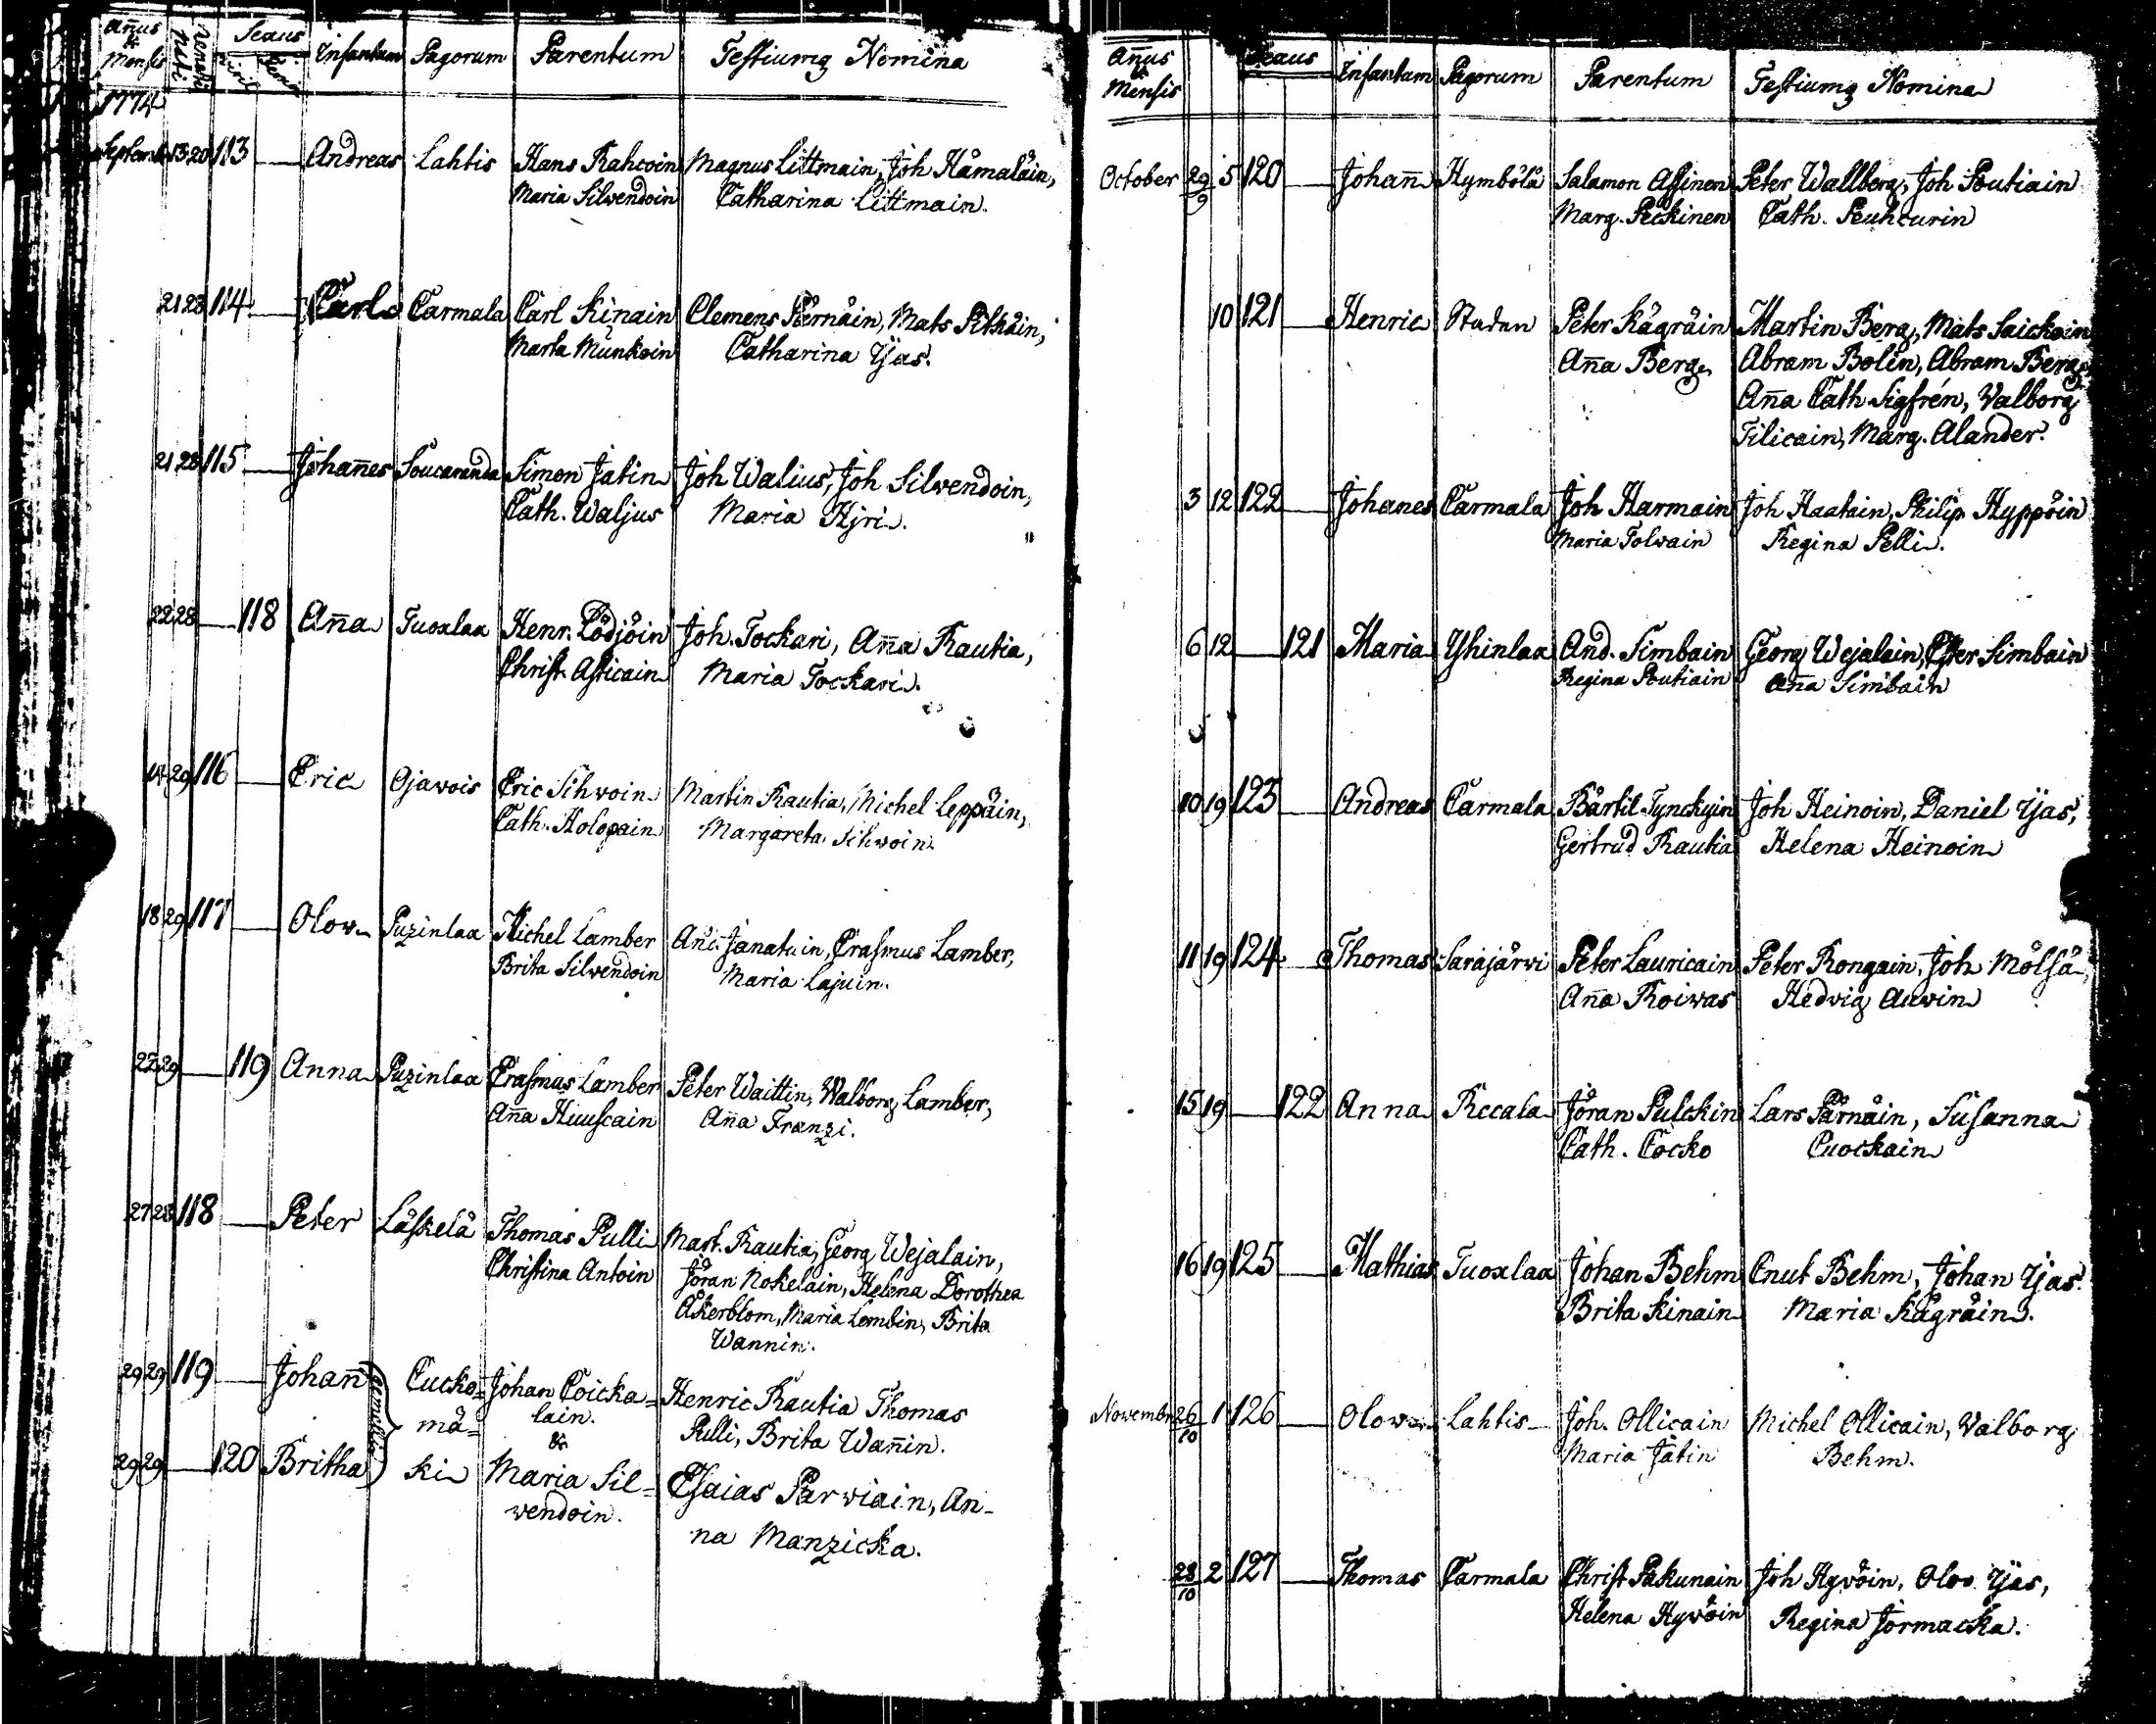 Añus & Mensis Nati Renati Sexus Viril Fœmi Infantum Pagorum Parentum Testiumq Nomina
1774
Septemb 13 20 113 Andreas Lahtis Hans Rahcoin Magnus Littmain, Joh Håmalåin,
Maria Silvendoin Catharina Littmain.
21 28 114 Carl Carmala Carl Kinain Clemens Pernåin, Mats Pitkåin,
Marta Munkoin Catharina Yjas.
21 28 115 Johañes Soucaranda Simon Jatin Joh Walius, Joh Silvendoin,
Cath. Waljus Maria Hjri.
22 28 118 Aña Tuoxlax Henr. Lödjöin Joh. Tockari, Aña Rautia,
Christ. Asicain Maria Tockari.
14 29 116 Eric Ojavois Eric Sihvoin Martin Rautia, Michel Leppåin,
Cath. Holopain Margareta Sihvoin.
18 29 117 Olov Puzinlax Michel Lamber And. Janatuin, Erasmus Lamber,
Brita Silvendoin Maria Lajuin.
25 29 119 Anna Puzinlax Erasmus Lamber Peter Waittin, Walborg Lamber,
Aña Huuscain Aña Franzi.
27 28 118 Peter Låskelå Thomas Pulli Mart. Rautia, Georg Wejalain,
Christina Antoin Jöran Nokelain, Helena Dorothea
Åkerblom, Maria Lembin, Brita
Wannin.
29 29 119 Johañ Cucko= Johan Coicka= Henric Rautia Thomas
gemelli må= lain. Pulli, Brita Wañin.
&
29 29 120 Britha ki Maria Sil= Esaias Parviain, An-
vendoin. na Manzicka.
Añus & Mensis Sexus Infantum Pagorum Parentum Testiumq Nomina
October 29/9 5 120 Johañ Hymbölå Salamon Assinen Peter Wallberg, Joh Poutiain
Marg. Peckinen Cath. Peuhcurin
10 121 Henric Staden Peter Kågråin Martin Berg, Mats Saickoin
Aña Berg Abram Bolin, Abram Berg
Aña Cath Sigfrén, Valborg
Tilicain, Marg. Alander.
3 12 122 Johanes Carmala Joh Harmain Joh Haatain, Philip Hyppöin
Maria Tolvain Regina Pelli.
6 12 121 Maria Yhinlax And. Simbain Georg Wejalain, Ester Simbain
Regina Poutiain Aña Simbain
10 19 123 Andreas Carmala Bårtil Tynckyin Joh Heinoin, Daniel Yjas,
Gertrud Rautia Helena Heinoin
11 19 124 Thomas Sarajårvi Peter Lauricain Peter Rongain, Joh Mölså,
Aña Roivas Hedvig Auvin
15 19 122 Anna Rccala Jöran Pulckin Lars Pårnåin, Susanna
Cath. Cocko Cuockain
16 19 125 Mathias Tuoxlax Johan Behm Cnut Behm, Johan Yjas.
Brita Kinain Maria Kågråin.
Novembr 26/10 1 126 Olov Lahtis Joh. Ollicain Michel Ollicain, Valborg
Maria Jåtin Behm.
28/10 2 127 Thomas Carmala Christ Pakunain Joh Hyvöin, Olov Yjas,
Helena Hyvöin Regina Jormacka.